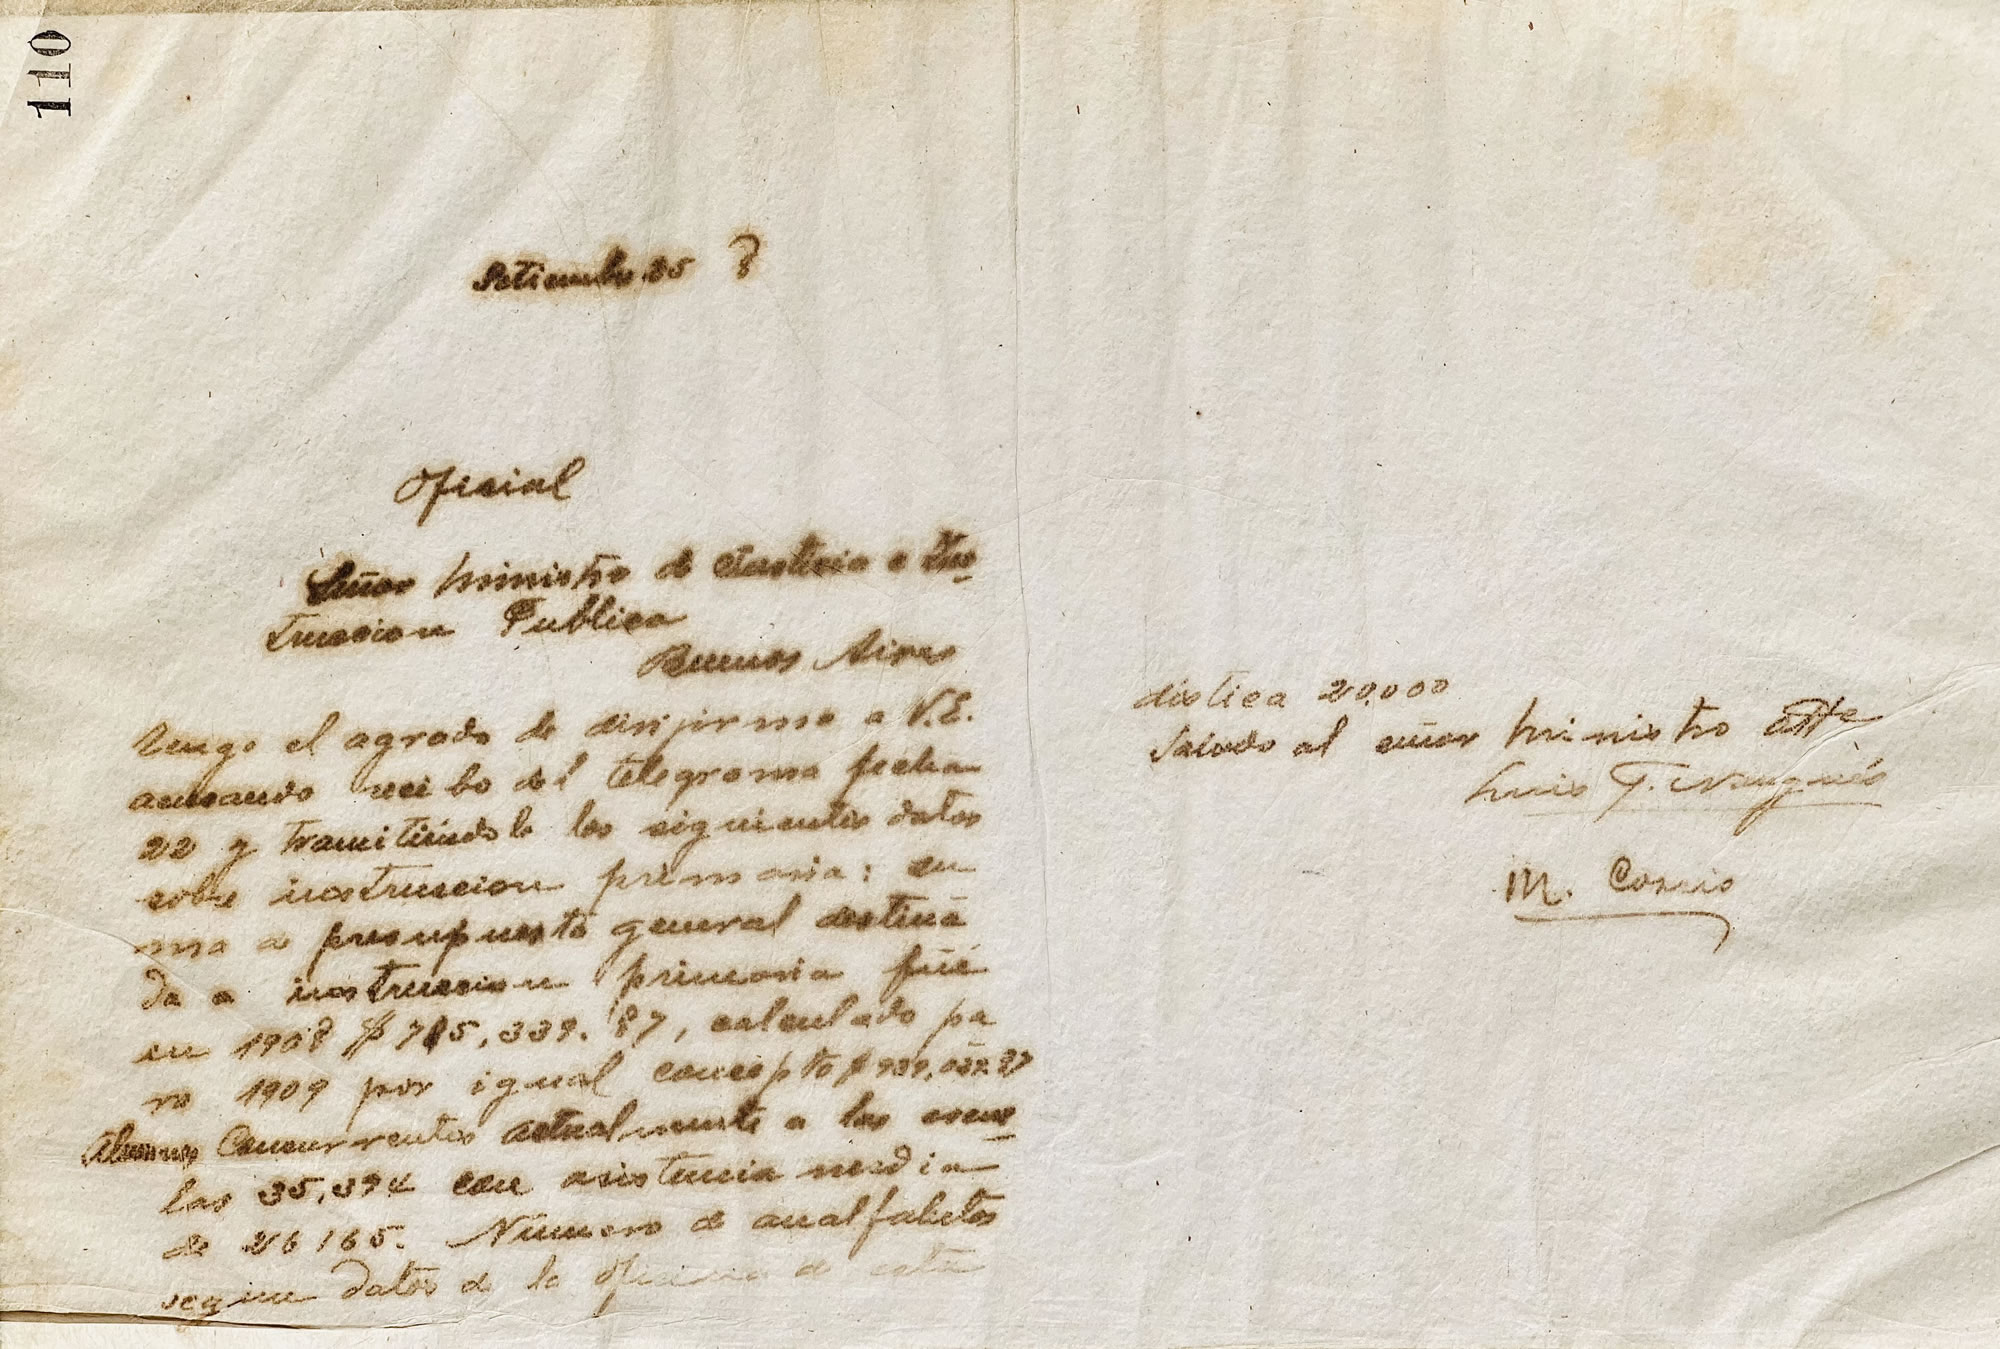 110
Setiembre 25 8
Oficial
Señor Ministro de Justicia e Ins-
truccion Publica
Buenos Aires
Tengo el agrado de dirijirme a V.E.
acusando recibo del telegrama fecha
22 y tramitiendole los siguientes datos
sobre instruccion primaria: su
ma de presupuesto general destina
da a instruccion primaria fué
en 1908 $ 715,339.87, calculado pa
ra 1909 por igual concepto $
Alumnos Concurrentes actualmente a las escue
las 35,394 con asistencia media
de 26165. Número de analfabetos
segun datos de la oficina de esta
distica 20.000
Saludo al señor Ministro atte
Luis F. Nougués
M. Corrio